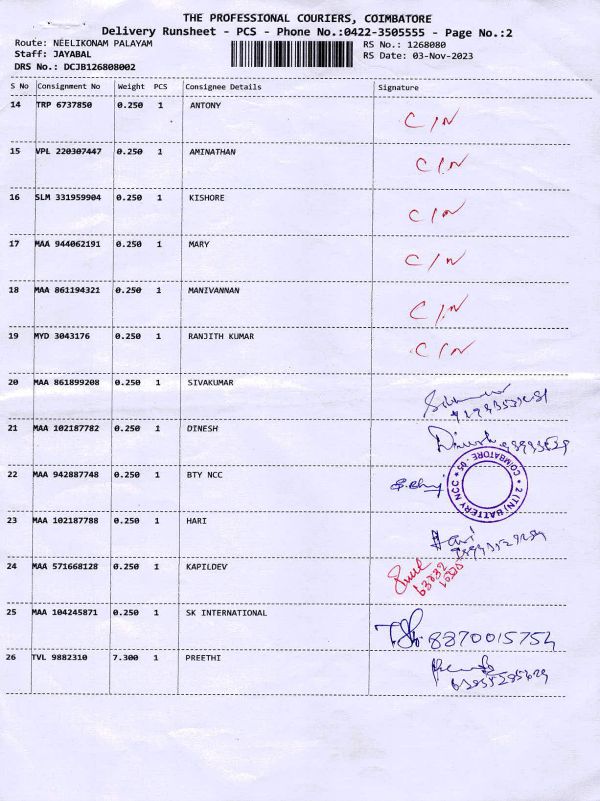 THE PROFESSIONAL COURIERS, COIMBATORE
Delivery Runsheet - PCS - Phone No.:0422-3505555 - Page No.:2
Route: NEELIKONAM PALAYAM
Staff: JAYABAL
DRS No.: DCJB126808002
RS No.: 1268080
RS Date: 03-Nov-2023
S No Consignment No Weight PCS Consignee Details Signature
14 TRP 6737850 0.250 1 ANTONY C/N
15 VPL 220307447 0.250 1 AMINATHAN C/N
16 SLM 331959904 0.250 1 KISHORE C/N
17 MAA 944062191 0.250 1 MARY C/N
18 MAA 861194321 0.250 1 MANIVANNAN C/N
19 MYD 3043176 0.250 1 RANJITH KUMAR C/N
20 MAA 861899208 0.250 1 SIVAKUMAR
21 MAA 102187782 0.250 1 DINESH Dinesh
22 MAA 942887748 0.250 1 BTY NCC
2 (TN) BATTERY NCC * COIMBATORE - 05 *
23 MAA 102187788 0.250 1 HARI Hari
24 MAA 571668128 0.250 1 KAPILDEV
25 MAA 104245871 0.250 1 SK INTERNATIONAL 8870015754
26 TVL 9882310 7.300 1 PREETHI